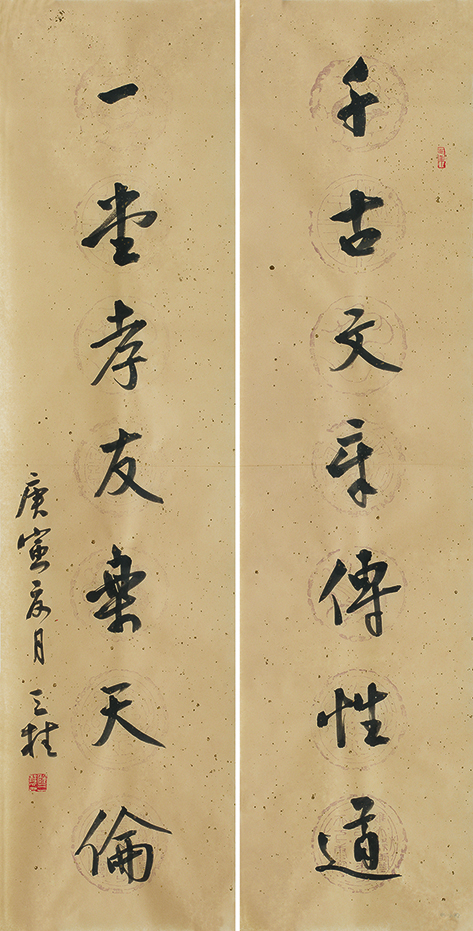 千古文章傳性道
一堂孝友樂天倫
庚寅夏月 三柱